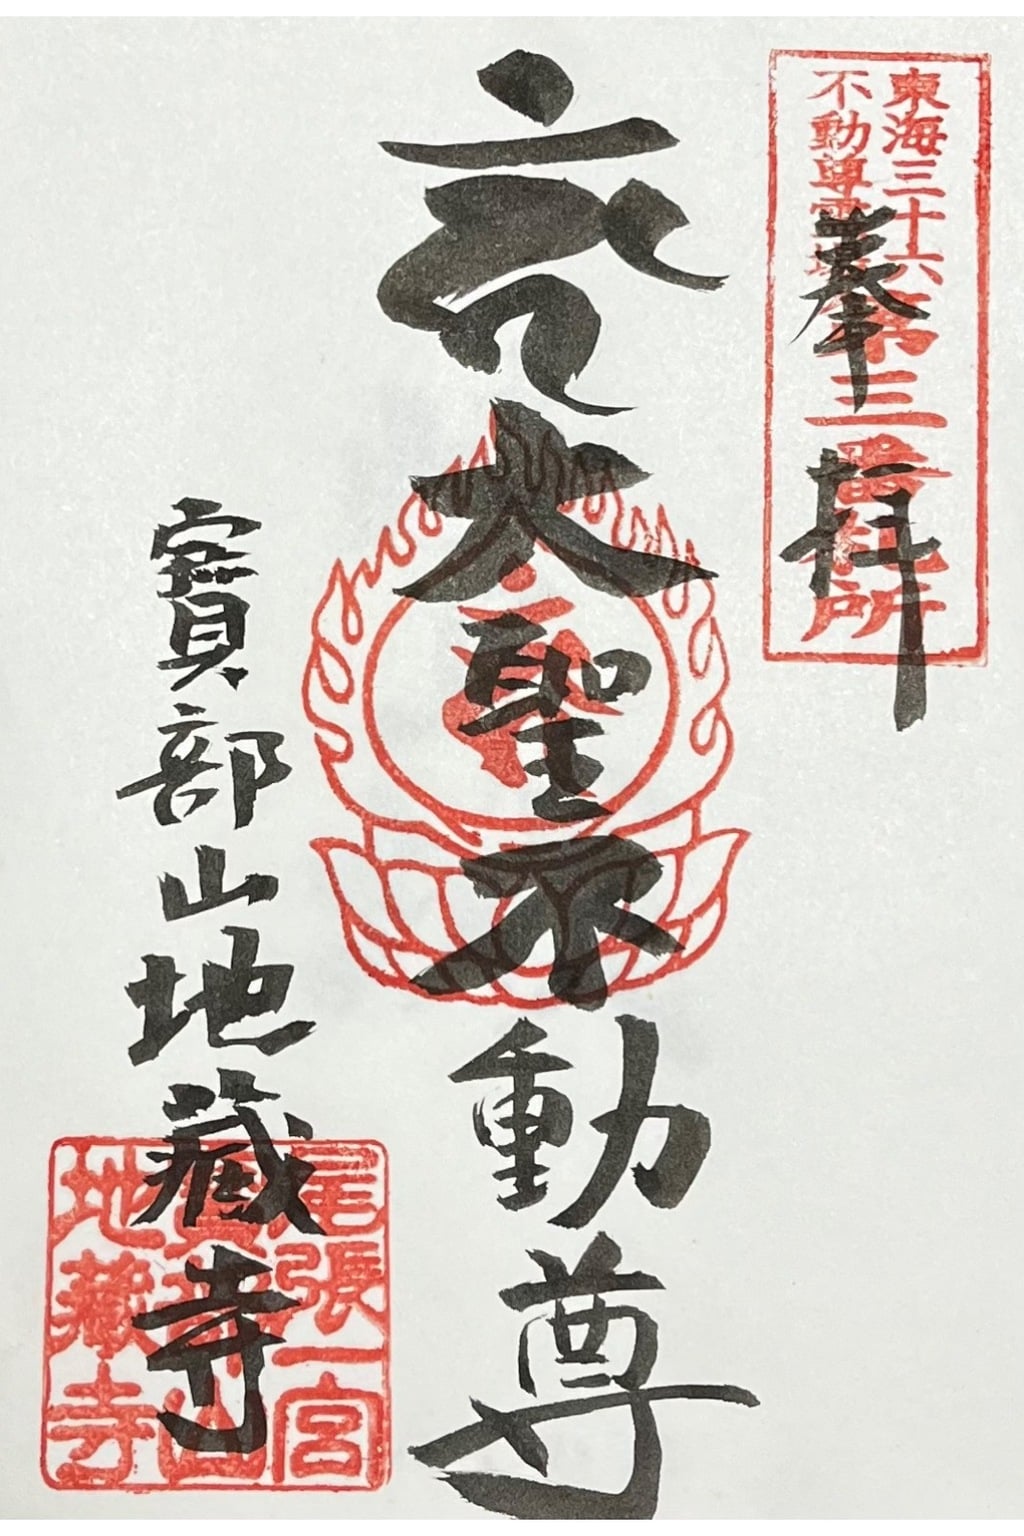 東海三十六
不動尊霊場
第三番札所
奉拝
大聖不動尊
寳部山地蔵寺
尾張一宮
寳部山
地蔵寺